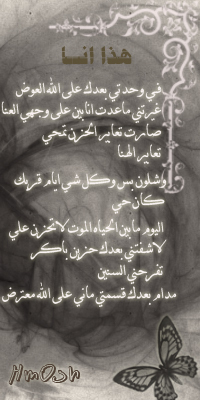 هذا انا
في وحدتي بعدك على الله العوض
غيرتني ماعدت انا بين على وجهي العنا
صارت تعابير الحزن تمحي
تعابير الهنا
وشلون بس وكل شي ايام قربك
كان حي
اليوم مابين الحياه الموت لاتحزن علي
لاشفتني بعدك حزين باكر
تفرحني السنين
مدام بعدك قسمتي ماني على الله معترض